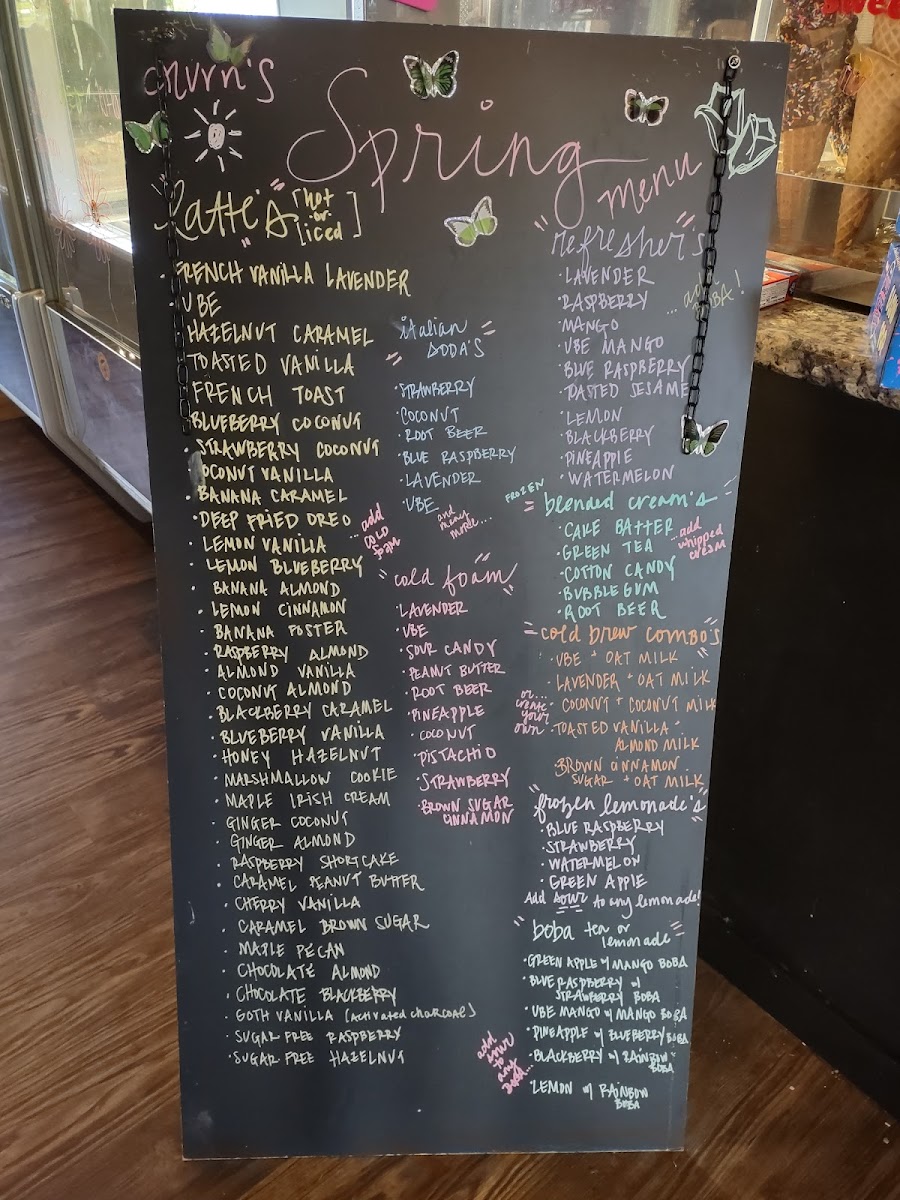 churn's
Spring
menu
Latte's [hot
-or-
iced]
FRENCH VANILLA LAVENDER
UBE
HAZELNUT CARAMEL
TOASTED VANILLA
FRENCH TOAST
BLUEBERRY COCONUT
STRAWBERRY COCONUT
COCONUT VANILLA
BANANA CARAMEL
DEEP FRIED OREO
LEMON VANILLA
LEMON BLUEBERRY
BANANA ALMOND
LEMON CINNAMON
BANANA FOSTER
RASPBERRY ALMOND
ALMOND VANILLA
COCONUT ALMOND
BLACKBERRY CARAMEL
BLUEBERRY VANILLA
HONEY HAZELNUT
MARSHMALLOW COOKIE
MAPLE IRISH CREAM
GINGER COCONUT
GINGER ALMOND
RASPBERRY SHORTCAKE
CARAMEL PEANUT BUTTER
CHERRY VANILLA
CARAMEL BROWN SUGAR
MAPLE PECAN
CHOCOLATE ALMOND
CHOCOLATE BLACKBERRY
GOTH VANILLA (activated charcoal)
SUGAR FREE RASPBERRY
SUGAR FREE HAZELNUT
...add
cold
foam
"italian
SODA'S"
·STRAWBERRY
·COCONUT
·ROOT BEER
·BLUE RASPBERRY
·LAVENDER
·UBE
and
many
more...
"cold foam"
·LAVENDER
·UBE
·SOUR CANDY
·PEANUT BUTTER
·ROOT BEER
·PINEAPPLE
·COCONUT
·PISTACHIO
·STRAWBERRY
·BROWN SUGAR
CINNAMON
"refresher's"
...add
BOBA!
·LAVENDER
·RASPBERRY
·MANGO
·UBE MANGO
·BLUE RASPBERRY
·TOASTED SESAME
·LEMON
·BLACKBERRY
·PINEAPPLE
·WATERMELON
FROZEN
"blended cream's"
·CAKE BATTER
·GREEN TEA
·COTTON CANDY
·BUBBLEGUM
·ROOT BEER
...add
whipped
cream
"cold brew combo's"
·UBE + OAT MILK
·LAVENDER + OAT MILK
·COCONUT + COCONUT MILK
·TOASTED VANILLA -
ALMOND MILK
·BROWN CINNAMON
SUGAR + OAT MILK
or...
create
your
own
"frozen lemonade's"
·BLUE RASPBERRY
·STRAWBERRY
·WATERMELON
·GREEN APPLE
Add sour to any lemonade!
"boba tea or
lemonade"
·GREEN APPLE w/ MANGO BOBA
·BLUE RASPBERRY w/
STRAWBERRY BOBA
·UBE MANGO w/ MANGO BOBA
·PINEAPPLE w/ BLUEBERRY BOBA
·BLACKBERRY w/ RAINBOW
BOBA
·LEMON w/ RAINBOW
BOBA
add
sour to
any